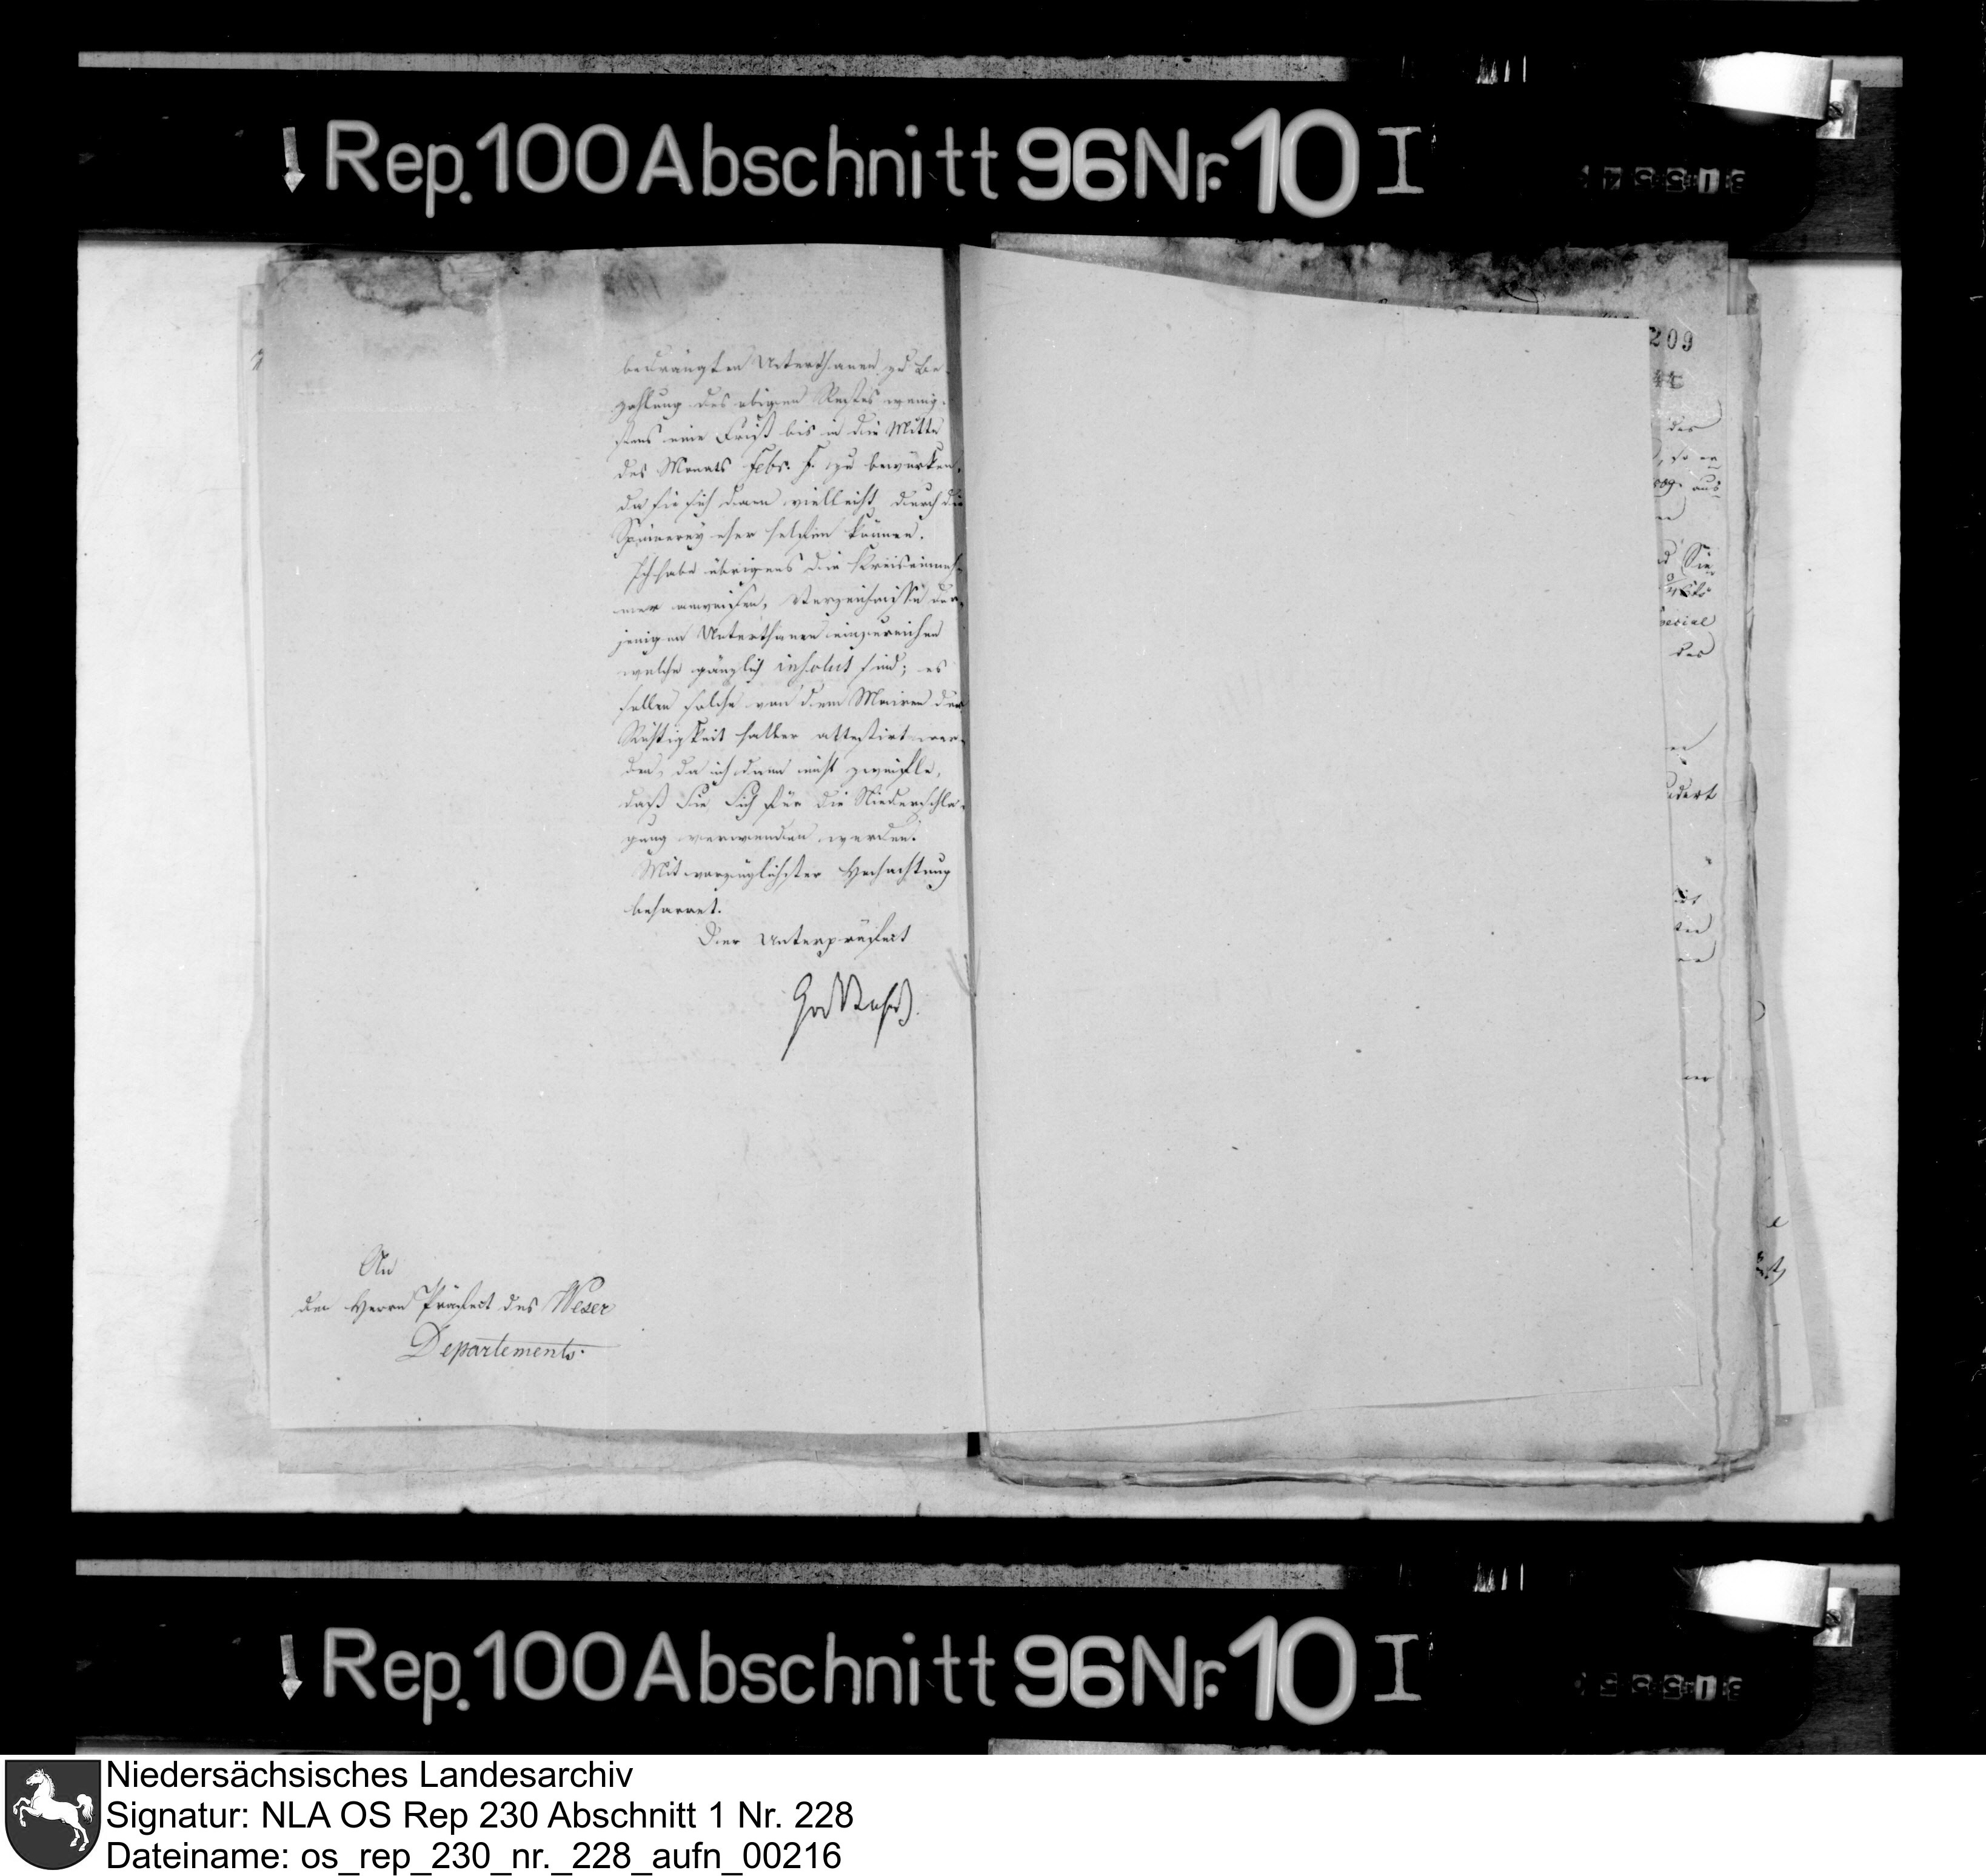 Rep. 100 Abschnitt 96 Nr. 10 I
209
bedrängten Unterthanen zu Be-
zahlung des obigen Restes wenig-
stens eine Frist bis in die Mitte
des Monats Febr. f. zu bewürken,
da sie sich dann vielleicht durch die
Spinnerey eher helfen können.
Ich habe übrigens die Kreiseinneh-
mer anweisen, Verzeichnisse der-
jenigen Unterthanen einzureichen
welche gänzlich insolut sind; es
sollen solche von dem Mairen der
Richtigkeit halber attestirt wer-
den, da ich dann nicht zweifle,
daß Sie Sich für die Niederschla-
gung verwenden werden.
Mit vorzüglichster Hochachtung
beharret.
Der Unterpräfect
An
den Herrn Präfect des Weser
Departements.
des
, so er
809. aus
Sie
pecial
des
ndert
Rep. 100 Abschnitt 96 Nr. 10 I
Niedersächsisches Landesarchiv
Signatur: NLA OS Rep 230 Abschnitt 1 Nr. 228
Dateiname: os_rep_230_nr._228_aufn_00216